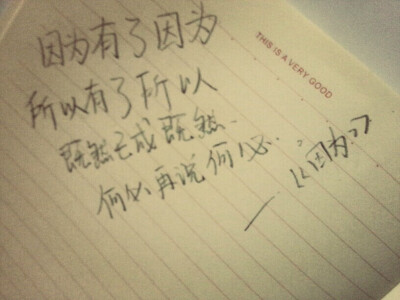 因为有了因为
THIS IS A VERY GOOD
所以有了所以
既然已成既然.
何必再说何必.
—《因为》